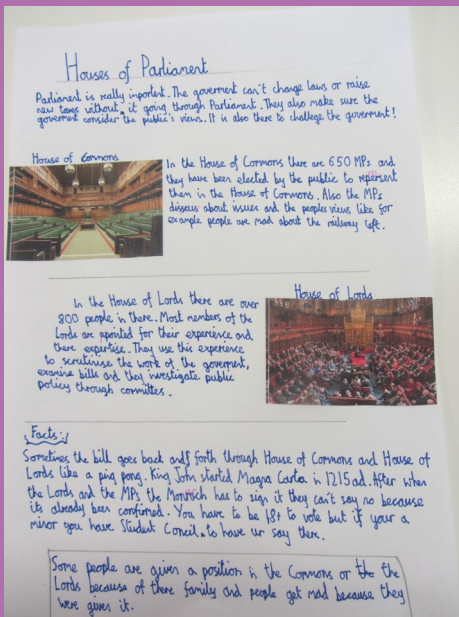 Houses of Parliament
Parliament is really important. The goverment can't change laws or raise
new taxes without it going through Parliament. They also make sure the
goverment consider the public's views. It is also there to challege the goverment!
House of Commons
In the House of Commons there are 650 MPs and
they have been elected by the public to repersent
them in the House of Commons. Also the MPs
disscuss about issues and the peoples views like for
example people are mad about the railway left.
House of Lords
In the House of Lords there are over
800 people in there. Most members of the
Lords are apointed for their experience and
there expertise. They use this experience
to scrutinise the work of the goverment,
examine bills and they investigate public
policy through committes.
Facts:
Sometimes the bill goes back and forth through House of Commons and House of
Lords like a ping pong. King John started Magna Carta in 1215ad. After when
the Lords and the MPs the Monrich has to sign it they can't say no because
its already been confirmed. You have to be 18+ to vote but if your a
minor you have Student Concil to have ur say there.
Some people are given a position in the Commons or the the
Lords because of there family and people get mad because they
were given it.